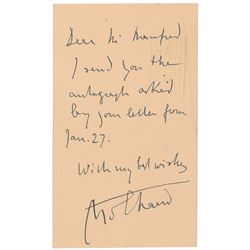 Dear Mr Manifred
I send you the
autograph asked
by your letter from
Jan. 27.
With my best wishes